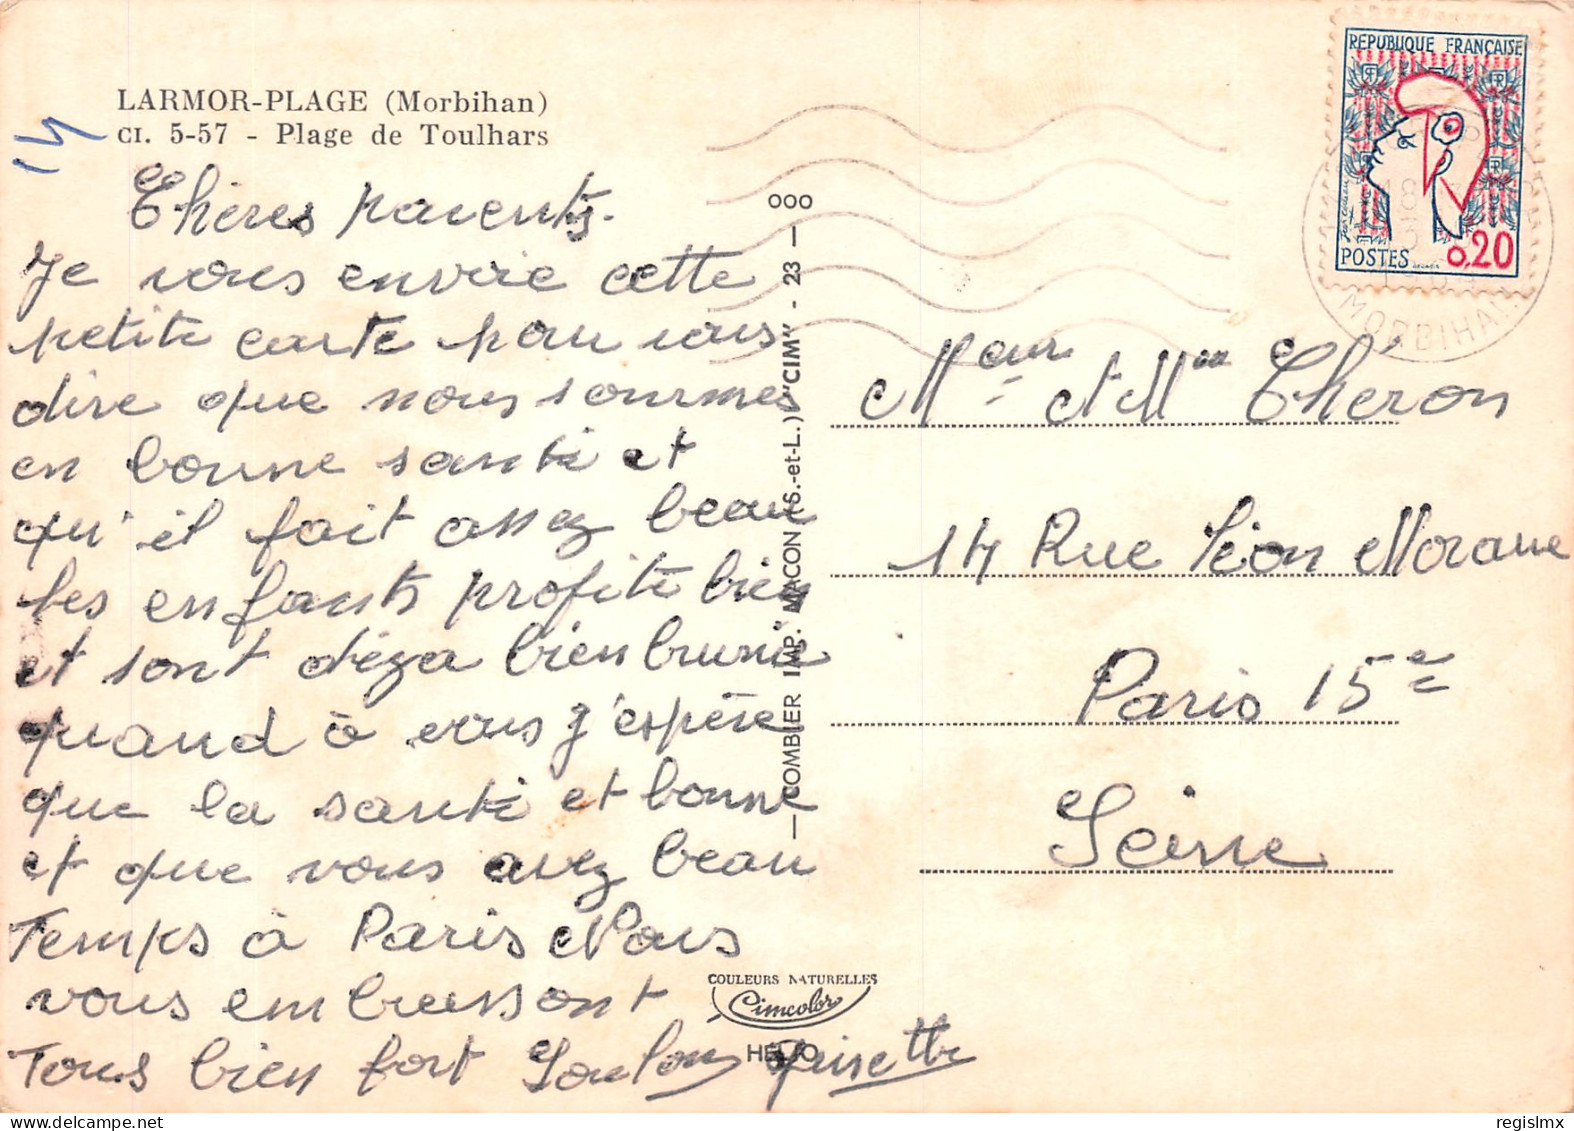 LARMOR-PLAGE (Morbihan)
CI. 5-57 - Plage de Toulhars
14
Chères parents.
Je vous envoie cette
petite carte pour vous
dire que nous sommes
en bonne santé et
qu'il fait assez beau
les enfants profite bien
et sont déza bien brunie
quand à vous j'espère
que la santé et bonne
et que vous avez beau
Temps à Paris Nous
vous embrassont
Tous bien fort Loulou Ginette
ooo
— COMBIER IMP. MACON (S.-et-L.) "CIM" - 23 —
COULEURS NATURELLES
Cimcolor
HELIO
REPUBLIQUE FRANÇAISE
POSTES 0,20
MORBIHAN
Meur et Mme Théron
14 Rue Léon Morane
Paris 15e
Seine
regislmx